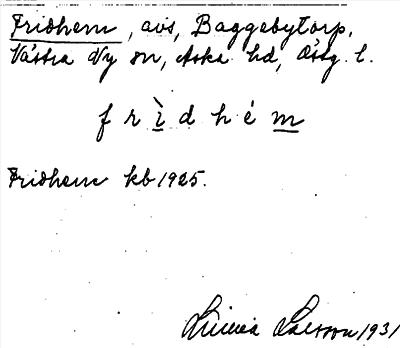 Fridhem, avs, Baggebytorp,
Västra Ny sn, Aska hd, Östg. l.
f r ì d h é m
Fridhem kb 1925.
Linnea Larsson 1931